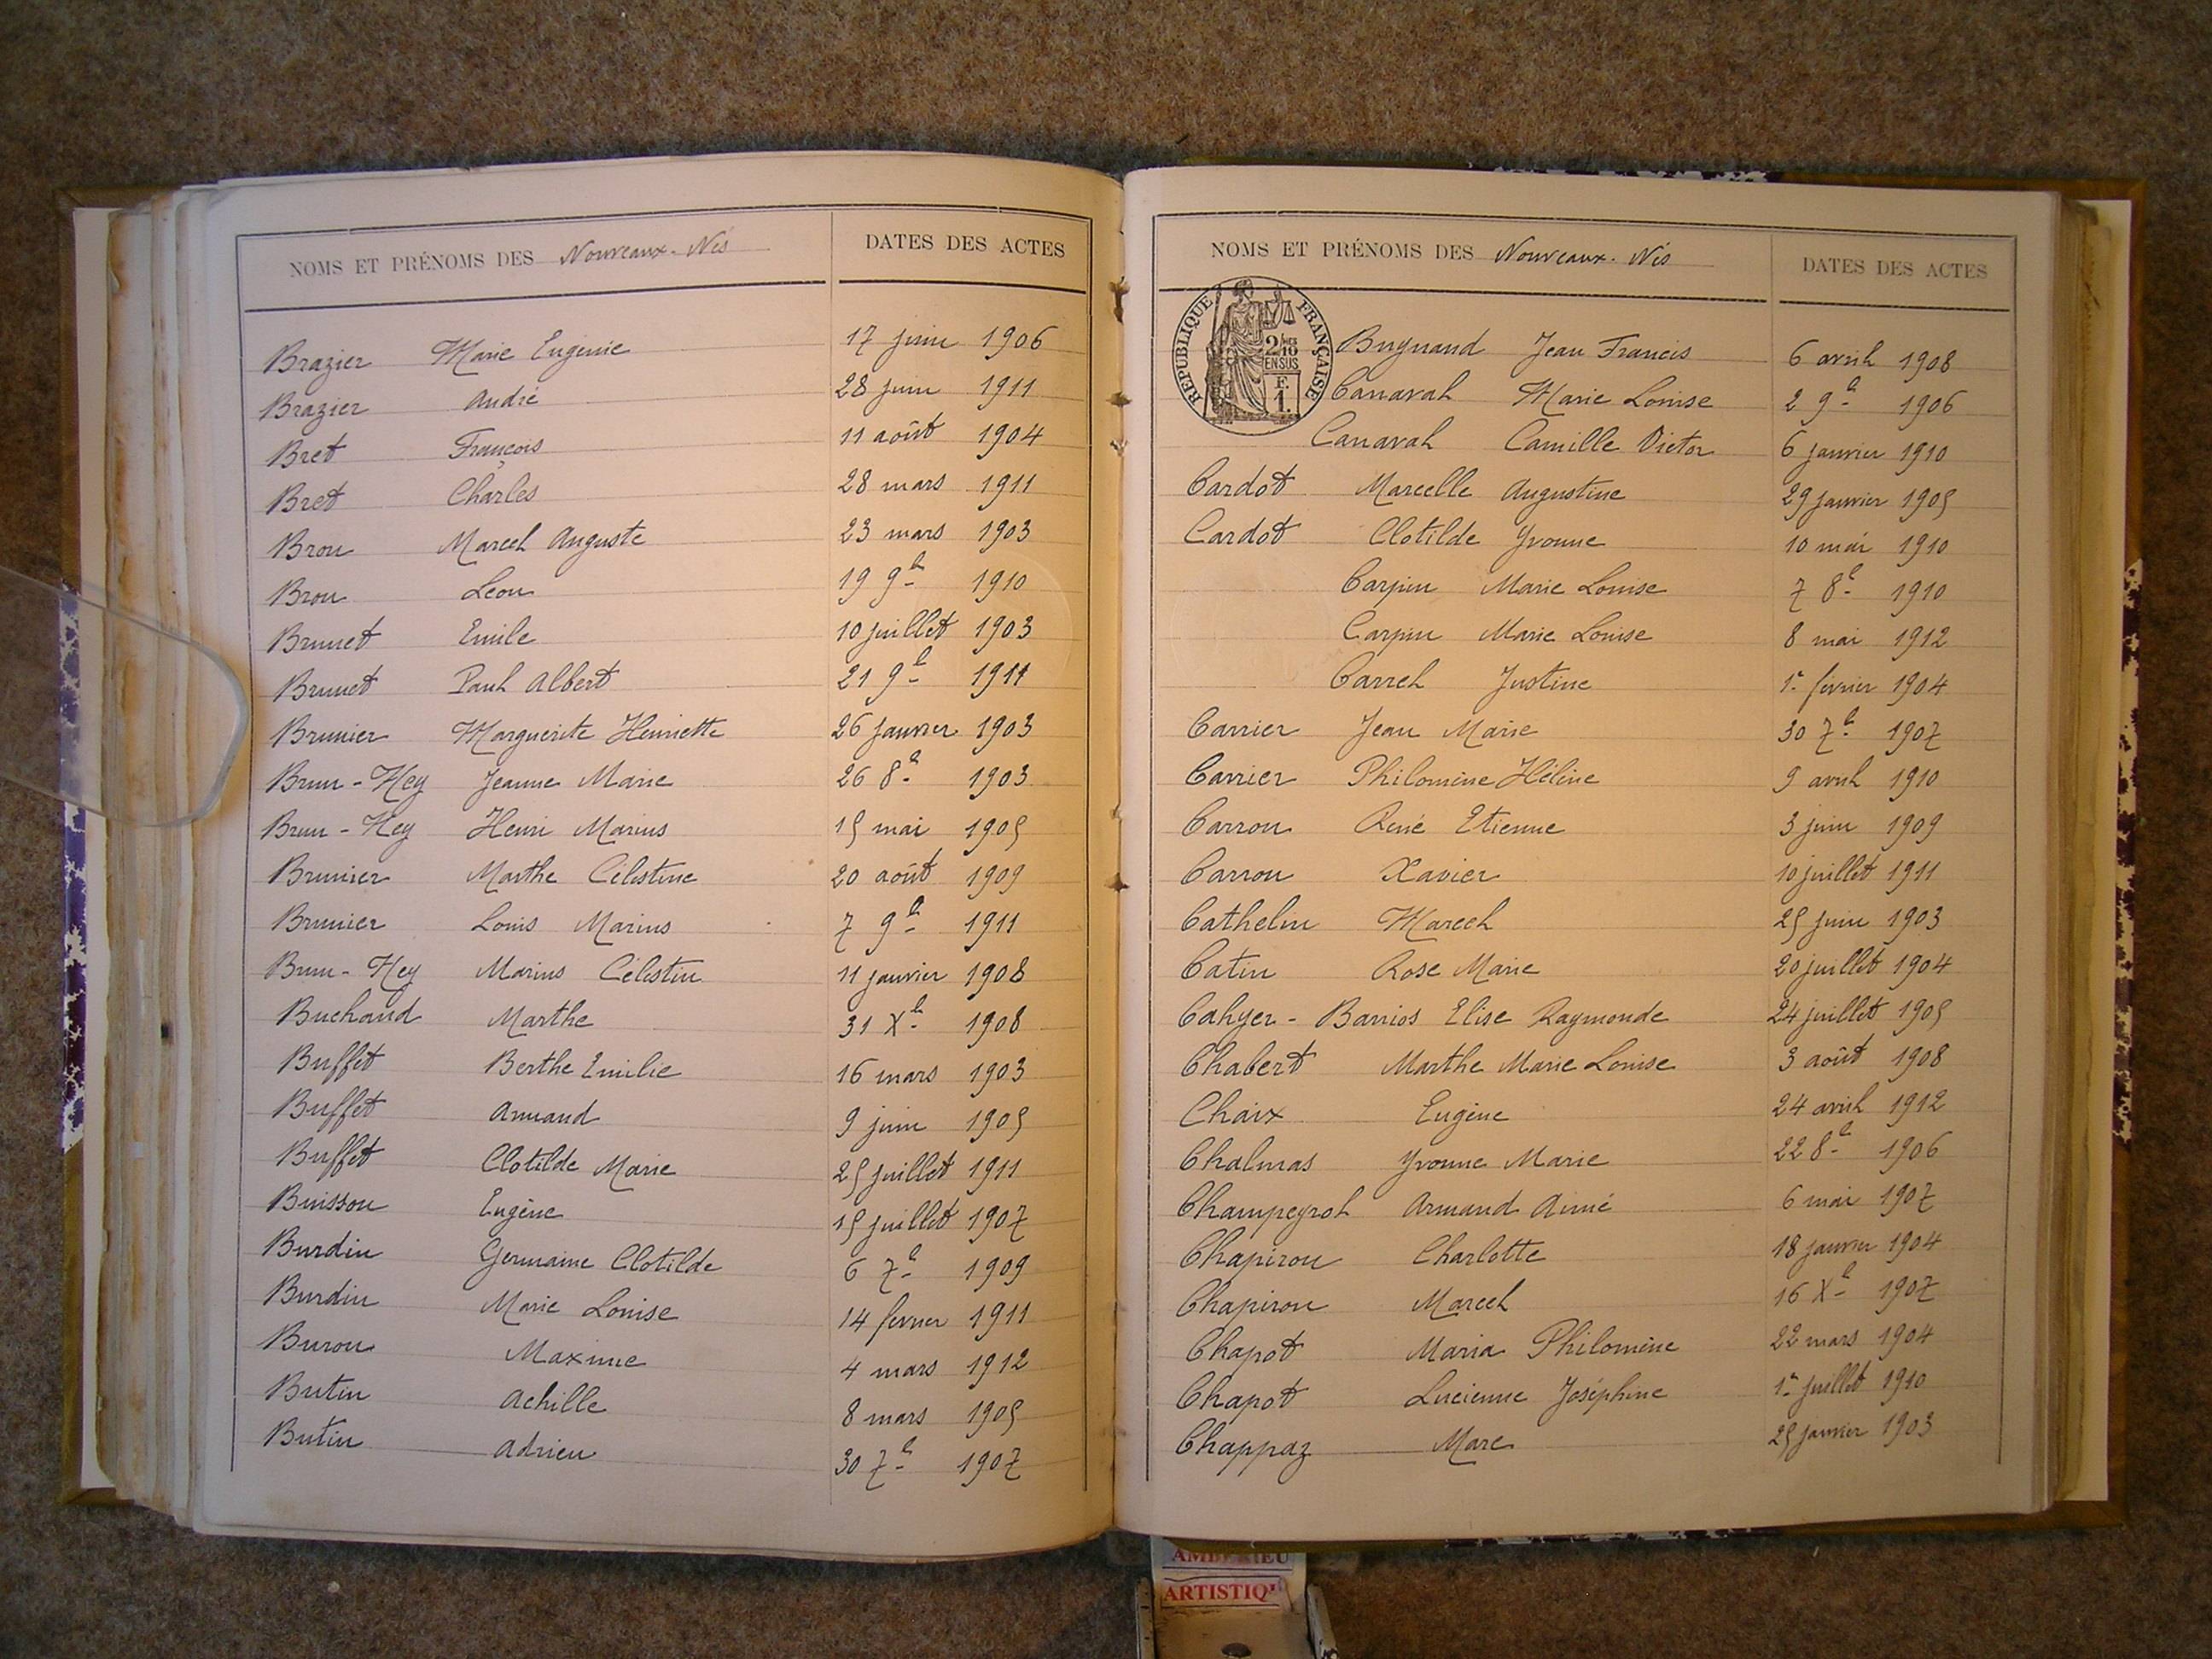 NOMS ET PRÉNOMS DES Nouveaux-Nés DATES DES ACTES
Brazier Marie Eugénie 17 juin 1906
Brazier André 28 juin 1911
Bret François 11 août 1904
Bret Charles 28 mars 1911
Bron Marcel Auguste 23 mars 1903
Bron Léon 19 9b 1910
Brunet Emile 10 juillet 1903
Brunet Paul Albert 21 9b 1911
Brunier Marguerite Henriette 26 janvier 1903
Brun-Hey Jeanne Marie 26 8b 1903
Brun-Hey Henri Marius 15 mai 1905
Brunier Marthe Célestine 20 août 1909
Brunier Louis Marius 7 9b 1911
Brun-Hey Marius Célestin 11 janvier 1908
Buchaud Marthe 31 Xb 1908
Buffet Berthe Emilie 16 mars 1903
Buffet Armand 9 juin 1905
Buffet Clotilde Marie 25 juillet 1911
Buisson Eugène 15 juillet 1907
Burdin Germaine Clotilde 6 7b 1909
Burdin Marie Louise 14 février 1911
Buron Maxime 4 mars 1912
Butin Achille 8 mars 1905
Butin Adrien 30 7b 1907
NOMS ET PRÉNOMS DES Nouveaux-Nés DATES DES ACTES
RÉPUBLIQUE FRANÇAISE
2/10
EN SUS
F.
1.
Buynand Jean Francis 6 avril 1908
Canaval Marie Louise 2 9b 1906
Canaval Camille Victor 6 janvier 1910
Cardot Marcelle Augustine 29 janvier 1905
Cardot Clotilde Yvonne 10 mai 1910
Carpin Marie Louise 7 8b 1910
Carpin Marie Louise 8 mai 1912
Carrel Justine 1er février 1904
Carrier Jean Marie 30 7b 1907
Carrier Philomène Hélène 9 avril 1910
Carron René Etienne 3 juin 1909
Carron Xavier 10 juillet 1911
Cathelin Marcel 25 juin 1903
Catin Rose Marie 20 juillet 1904
Cahyer-Barrios Elise Raymonde 24 juillet 1905
Chabert Marthe Marie Louise 3 août 1908
Chaix Eugène 24 avril 1912
Chalmas Yvonne Marie 22 8b 1906
Champeyrol Armand Aimé 6 mai 1907
Chapiron Charlotte 18 janvier 1904
Chapiron Marcel 16 Xb 1907
Chapot Maria Philomène 22 mars 1904
Chapot Lucienne Joséphine 1er juillet 1910
Chappaz Marc 25 janvier 1903
ARTISTIQ